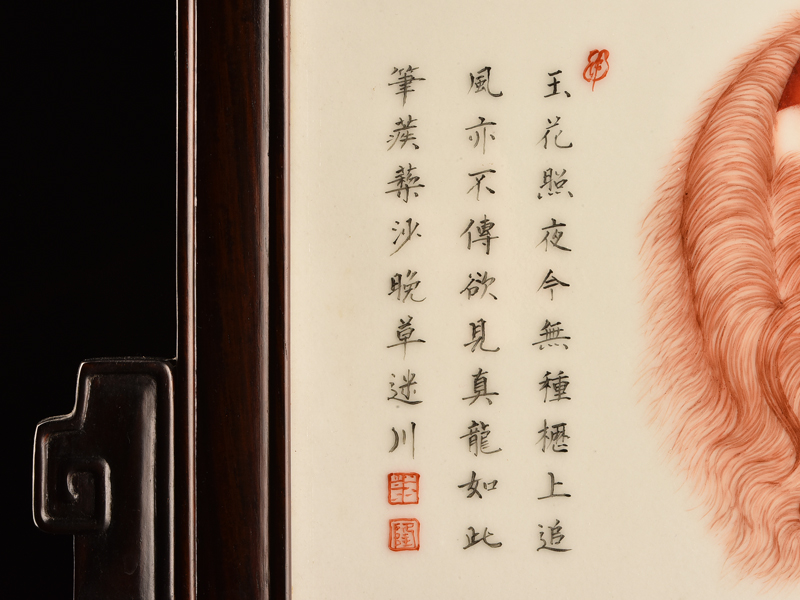 玉花照夜今無種櫪上追
風亦不傳欲見真龍如此
筆蒺藜沙晚草迷川
隆